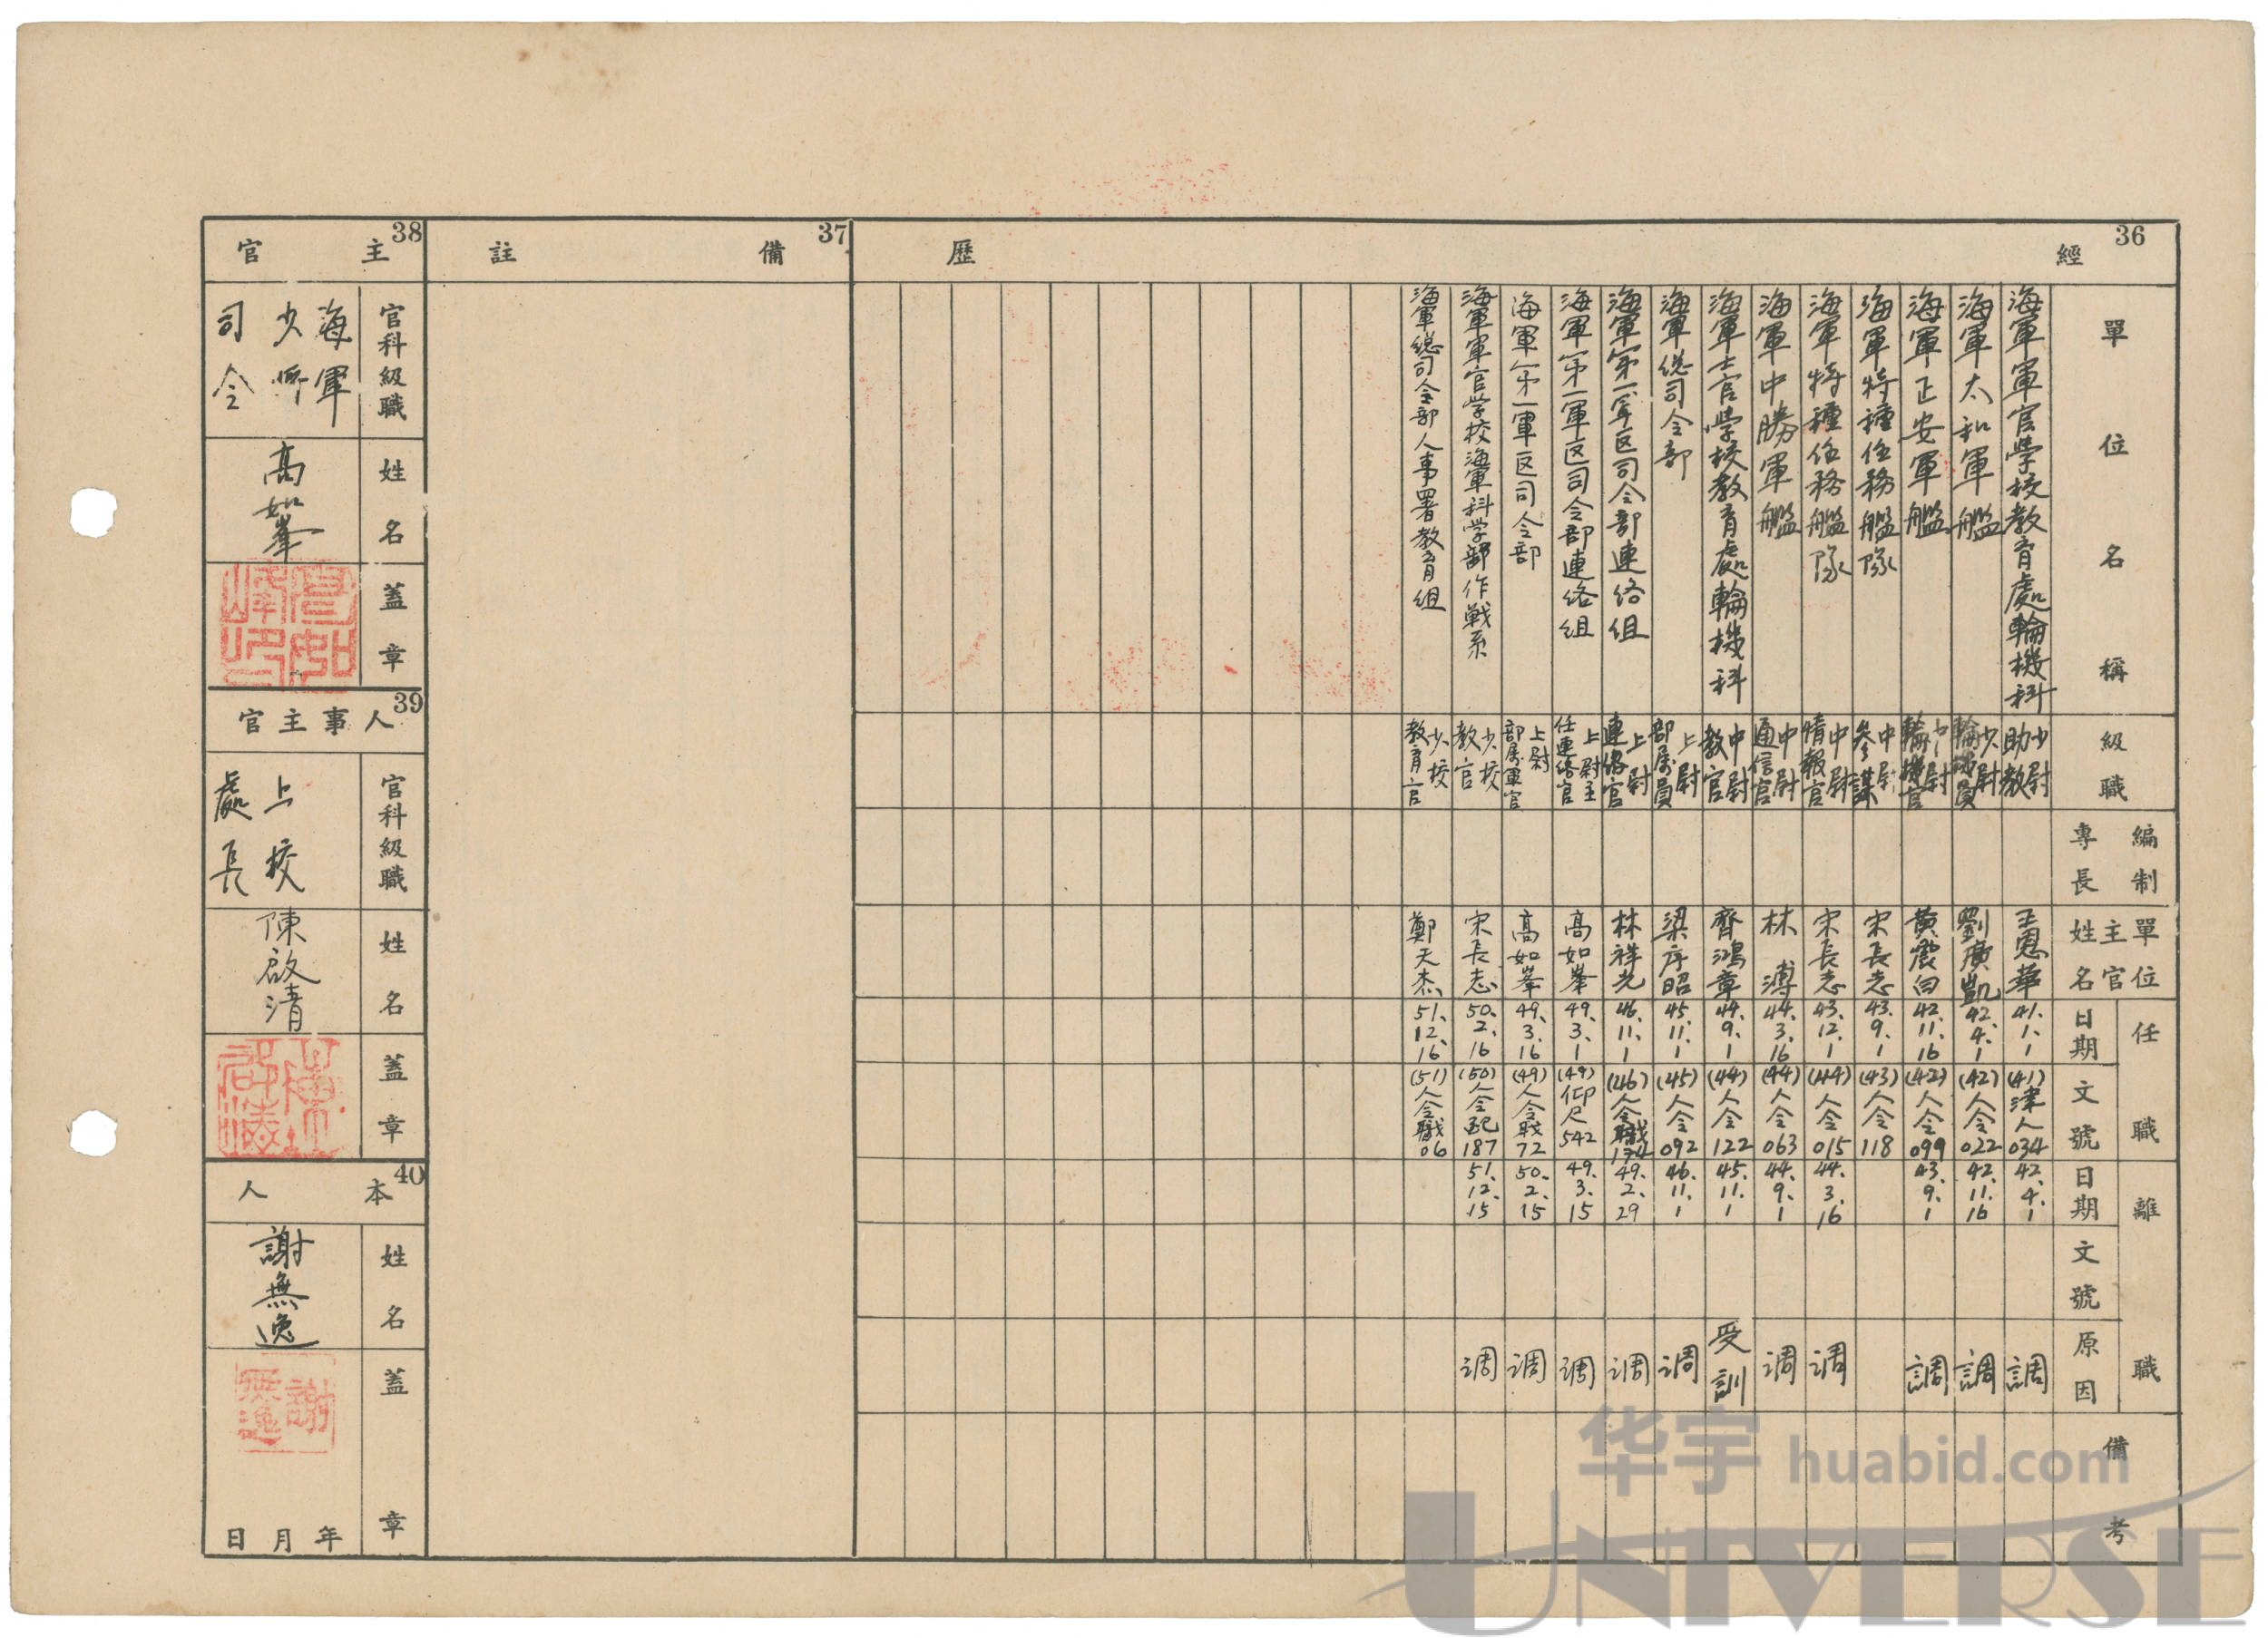 36
經歷
單位名稱
級職
編制專長
單位主官姓名
任職
日期
文號
離職
日期
文號
原因
備考
海軍軍官學校教育處輪機科
少尉
助教
王恩華
41.1.1
(41)津人034
42.4.1
調
海軍太和軍艦
少尉
劉廣凱
42.4.1
(42)人令022
42.11.16
調
海軍正安軍艦
中尉
輪機官
黃震白
42.11.16
(42)人令099
43.9.1
調
海軍特種任務艦隊
中尉
參謀
宋長志
43.9.1
(43)人令118
海軍特種任務艦隊
中尉
情報官
宋長志
43.12.1
(44)人令015
44.3.16
调
海軍中勝軍艦
中尉
通信官
林溥
44.3.16
(44)人令063
44.9.1
调
海軍士官學校教育處輪機科
中尉
教官
齊鴻章
44.9.1
(44)人令122
45.11.1
受訓
海軍總司令部
上尉
部屬員
梁序昭
45.11.1
(45)人令092
46.11.1
调
海軍第一軍区司令部連络组
上尉
連絡官
林祥光
46.11.1
(46)人令職134
49.2.29
调
海軍第一軍区司令部連络组
上尉主
任連络官
高如峯
49.3.1
(49)仰尺542
49.3.15
调
海軍第一軍区司令部
上尉
部屬軍官
高如峯
49.3.16
(49)人令职72
50.2.15
调
海軍軍官学校海軍科学部作戦系
少校
教官
宋長志
50.2.16
(50)人令配187
51.12.15
调
海軍總司令部人事署教育组
少校
教育官
鄭天杰
51.12.16
(51)人令職06
37
備註
38
主官
官科級職
海軍
少將
司令
姓名
高如峯
蓋章
高如峰印
39
人事主官
官科級職
上校
處長
姓名
陳啟清
蓋章
40
本人
姓名
謝無逸
蓋章
謝無逸
年月日
华宇 huabid.com
UNIVERSE